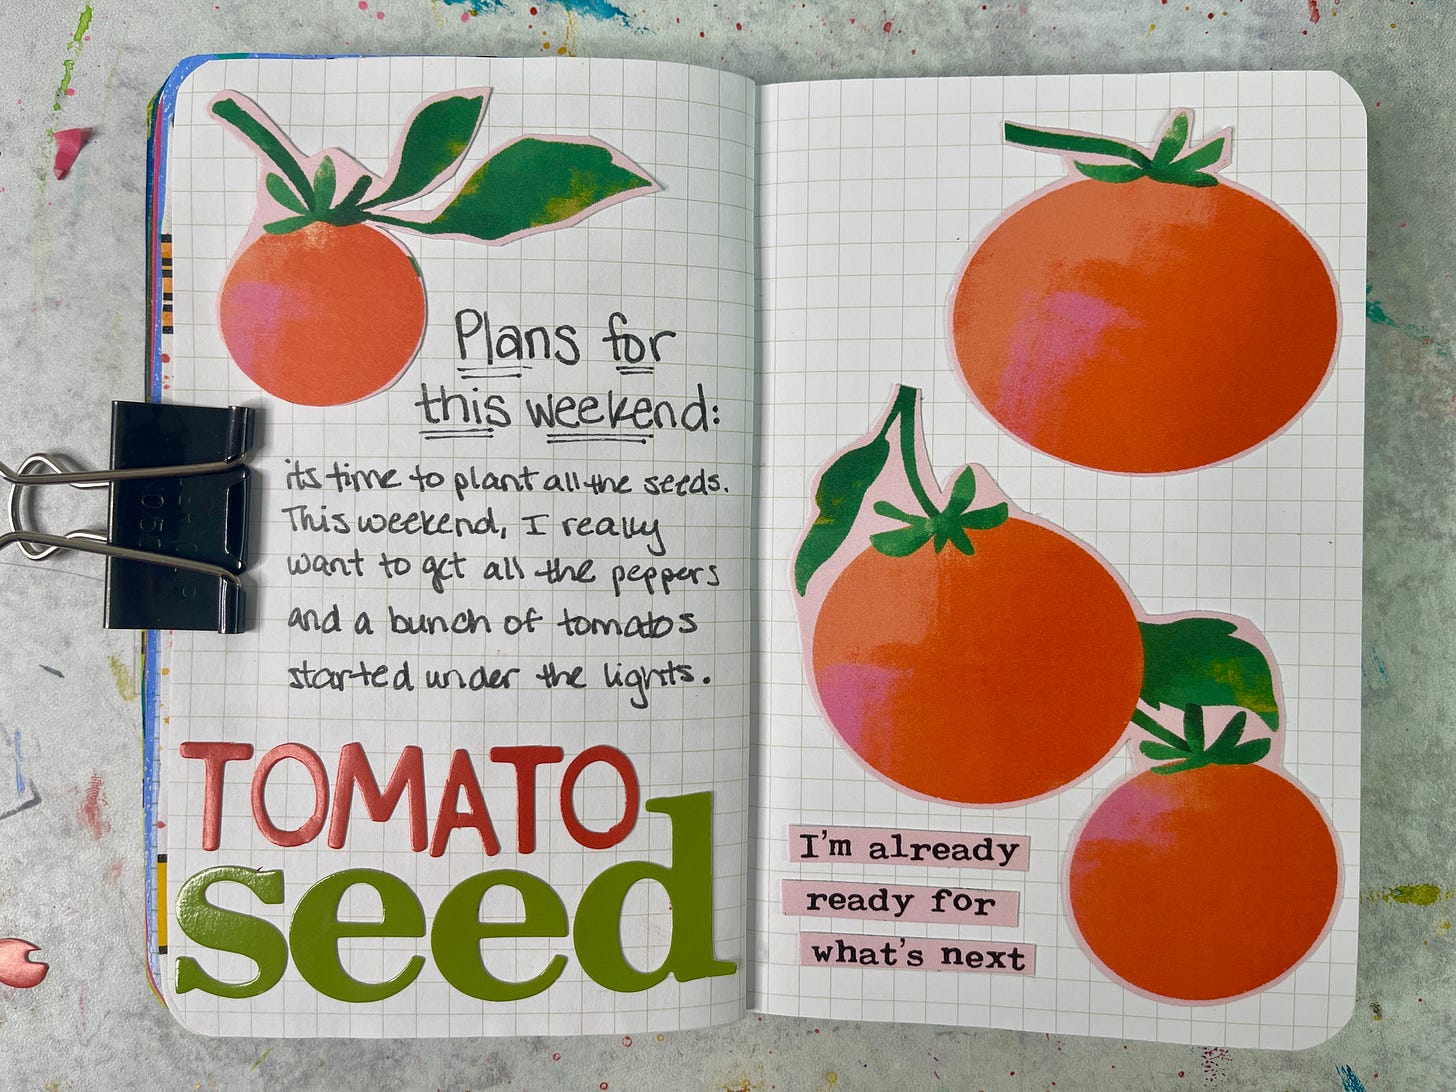 Plans for
this weekend:
its time to plant all the seeds.
This weekend, I really
want to get all the peppers
and a bunch of tomatos
started under the lights.
TOMATO
seed
I'm already
ready for
what's next